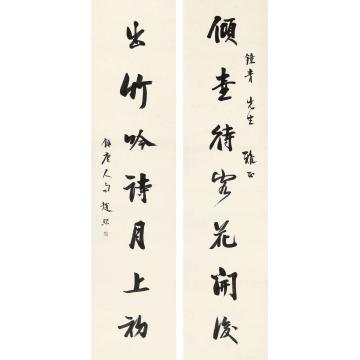 傾壺待客花開後
青先生 雅正
出竹吟詩月上初
唐人句 趙熙